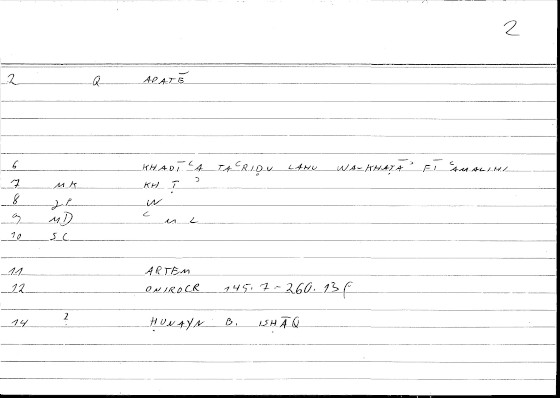 2
2 Q APATĒ
6 KHADĪʿA TAʿRIḌU LAHU WA-KHAṬĀʾ FĪ ʿAMALIHI
7 MK KH Ṭ ʾ
8 JP W
9 MD ʿ M L
10 SC
11 ARTEM
12 ONIROCR 145.7-260.13f
14 2 ḤUNAYN B. ISḤĀQ